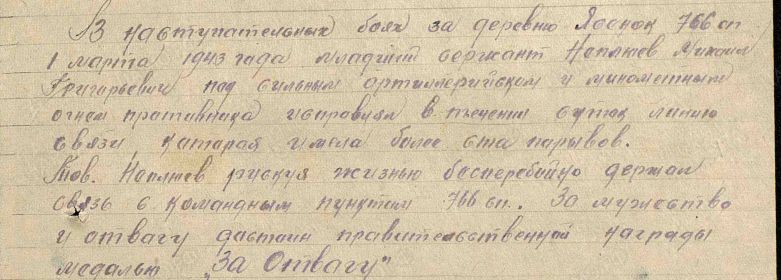 В наступательных боях за деревню Ясенок 766 сп
1 марта 1943 года младший сержант Неплюев Михаил
Григорьевич под сильным артиллерийским и минометным
огнем противника исправлял в течении суток линию
связи катарая имела более ста парывов.
Тов. Неплюев рискуя жизнью бесперебойно держал
связь с командным пунктам 766 сп. За мужество
и отвагу дастоин правительственной награды
медалью "За Отвагу"